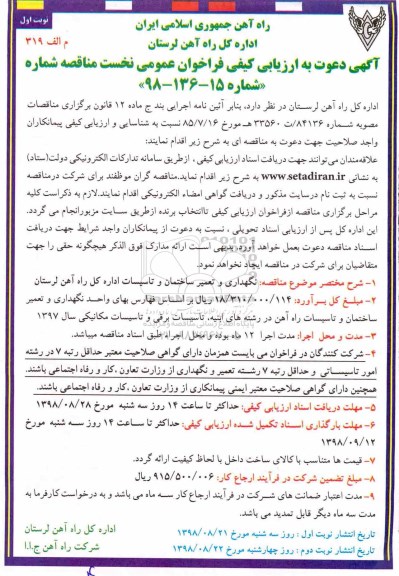 نوبت اول
راه آهن جمهوری اسلامی ایران
اداره کل راه آهن لرستان
م الف ۳۱۹
آگهی دعوت به ارزیابی کیفی فراخوان عمومی نخست مناقصه شماره
«شماره ۱۵-۱۳۶-۹۸»
اداره کل راه آهن لرستان در نظر دارد، بنابر آئین نامه اجرایی بند ج ماده ۱۲ قانون برگزاری مناقصات
مصوبه شماره ۸۴۱۳۶/ت ۳۳۵۶۰ هـ مورخ ۸۵/۷/۱۶ نسبت به شناسایی و ارزیابی کیفی پیمانکاران
واجد صلاحیت جهت دعوت به مناقصه ای به شرح زیر اقدام نمایند:
علاقه‌مندان می‌توانند جهت دریافت اسناد ارزیابی کیفی ، ازطریق سامانه تدارکات الکترونیکی دولت(ستاد)
به نشانی www.setadiran.ir به شرح زیر اقدام نماید.مناقصه گران موظفند برای شرکت درمناقصه
نسبت به ثبت نام درسایت مذکور و دریافت گواهی امضاء الکترونیکی اقدام نمایند.لازم به ذکراست کلیه
مراحل برگزاری مناقصه ازفراخوان ارزیابی کیفی تاانتخاب برنده ازطریق سایت مزبورانجام می گردد.
این اداره کل پس از ارزیابی اسناد تحویلی ، نسبت به دعوت از پیمانکاران واجد شرایط جهت دریافت
اسناد مناقصه دعوت بعمل خواهد آورد. بدیهی است ارائه مدارک فوق الذکر هیچگونه حقی را جهت
متقاضیان برای شرکت در مناقصه ایجاد نخواهد نمود.
۱- شرح مختصر موضوع مناقصه: نگهداری و تعمیر ساختمان و تاسیسات اداره کل راه آهن لرستان
۲- مبلغ کل برآورد: ۱۸/۳۱۰/۰۰۰/۱۱۴ ریال بر اساس فهارس بهای واحد نگهداری و تعمیر
ساختمان و تاسیسات راه آهن در رشته های ابنیه، تاسیسات برقی و تاسیسات مکانیکی سال ۱۳۹۷
۳- مدت و محل اجرا: مدت اجرا ۱۲ ماه بوده و محل اجرا، طبق اسناد مناقصه میباشد.
۴- شرکت کنندگان در فراخوان می بایست همزمان دارای گواهی صلاحیت معتبر حداقل رتبه ۷ در رشته
امور تاسیساتی و حداقل رتبه ۷ رشته تعمیر و نگهداری از وزارت تعاون ،کار و رفاه اجتماعی باشند.
همچنین دارای گواهی صلاحیت معتبر ایمنی پیمانکاری از وزارت تعاون ،کار و رفاه اجتماعی باشند.
۵- مهلت دریافت اسناد ارزیابی کیفی: حداکثر تا ساعت ۱۴ روز سه شنبه مورخ ۱۳۹۸/۰۸/۲۸
۶- مهلت بارگذاری اسناد تکمیل شده ارزیابی کیفی: حداکثر تا ساعت ۱۴ روز سه شنبه مورخ
۱۳۹۸/۰۹/۱۲
۷- قیمت ها متناسب با کالای ساخت داخل با لحاظ کیفیت ارائه گردد.
۸- مبلغ تضمین شرکت در فرآیند ارجاع کار: ۹۱۵/۵۰۰/۰۰۶ ریال
۹- مدت اعتبار ضمانت های شرکت در فرآیند ارجاع کار سه ماه می باشد و به درخواست کارفرما به
مدت سه ماه دیگر قابل تمدید می باشد.
تاریخ انتشار نوبت اول : روز سه شنبه مورخ ۱۳۹۸/۰۸/۲۱
تاریخ انتشار نوبت دوم : روز چهارشنبه مورخ ۱۳۹۸/۰۸/۲۲
اداره کل راه آهن لرستان
شرکت راه آهن ج.ا.ا